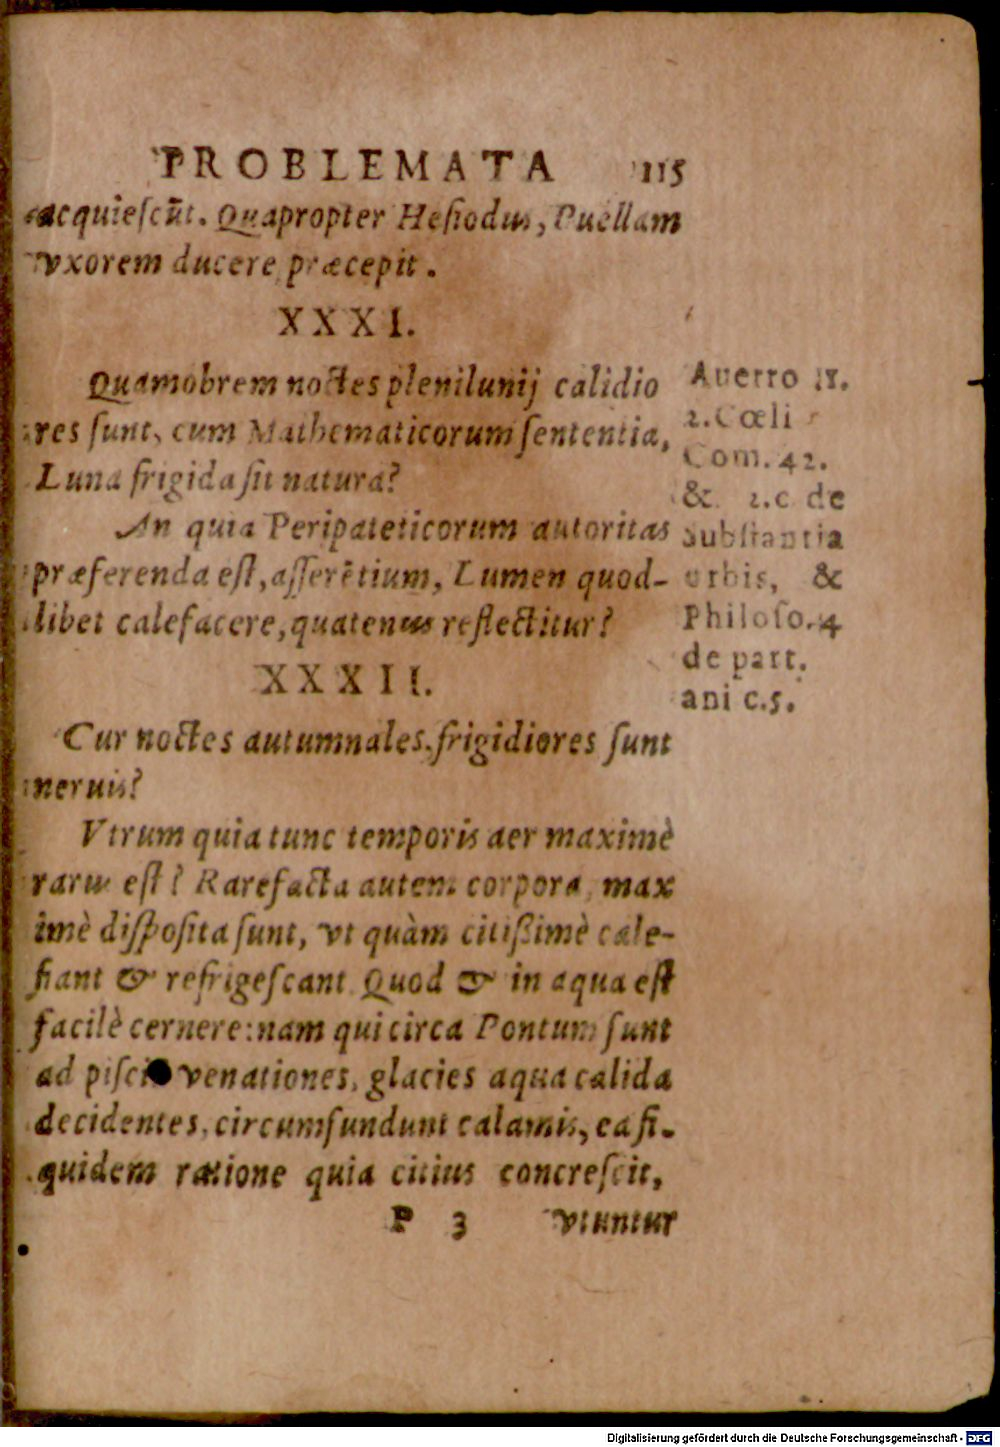 PROBLEMATA 115
acquieſcūt. Quapropter Heſiodus, Puellam
vxorem ducere præcepit.
XXXI.
Quamobrem noctes plenilunij calidio
res ſunt, cum Mathematicorum ſententia,
Luna frigida ſit natura?
An quia Peripateticorum autoritas
præferenda eſt, aſſerētium, Lumen quod-
libet calefacere, quatenus reflectitur?
Auerro
2. Cœli
Com. 42.
& 2. c de
Subſtantia
orbis, &
Philoſo. 4
de part.
ani c. 5.
XXXII.
Cur noctes autumnales frigidiores ſunt
neruis?
Vtrum quia tunc temporis aer maximè
rarus eſt? Rarefacta autem corpora, max
imè diſpoſita ſunt, vt quàm citißimè cale-
fiant & refrigeſcant. Quod & in aqua eſt
facilè cernere: nam qui circa Pontum ſunt
ad piſci venationes, glacies aqua calida
decidentes, circumfundunt calamis, ea ſi-
quidem ratione quia citius concreſcit,
P 3 vtuntur
Digitalisierung gefördert durch die Deutsche Forschungsgemeinschaft - DFG